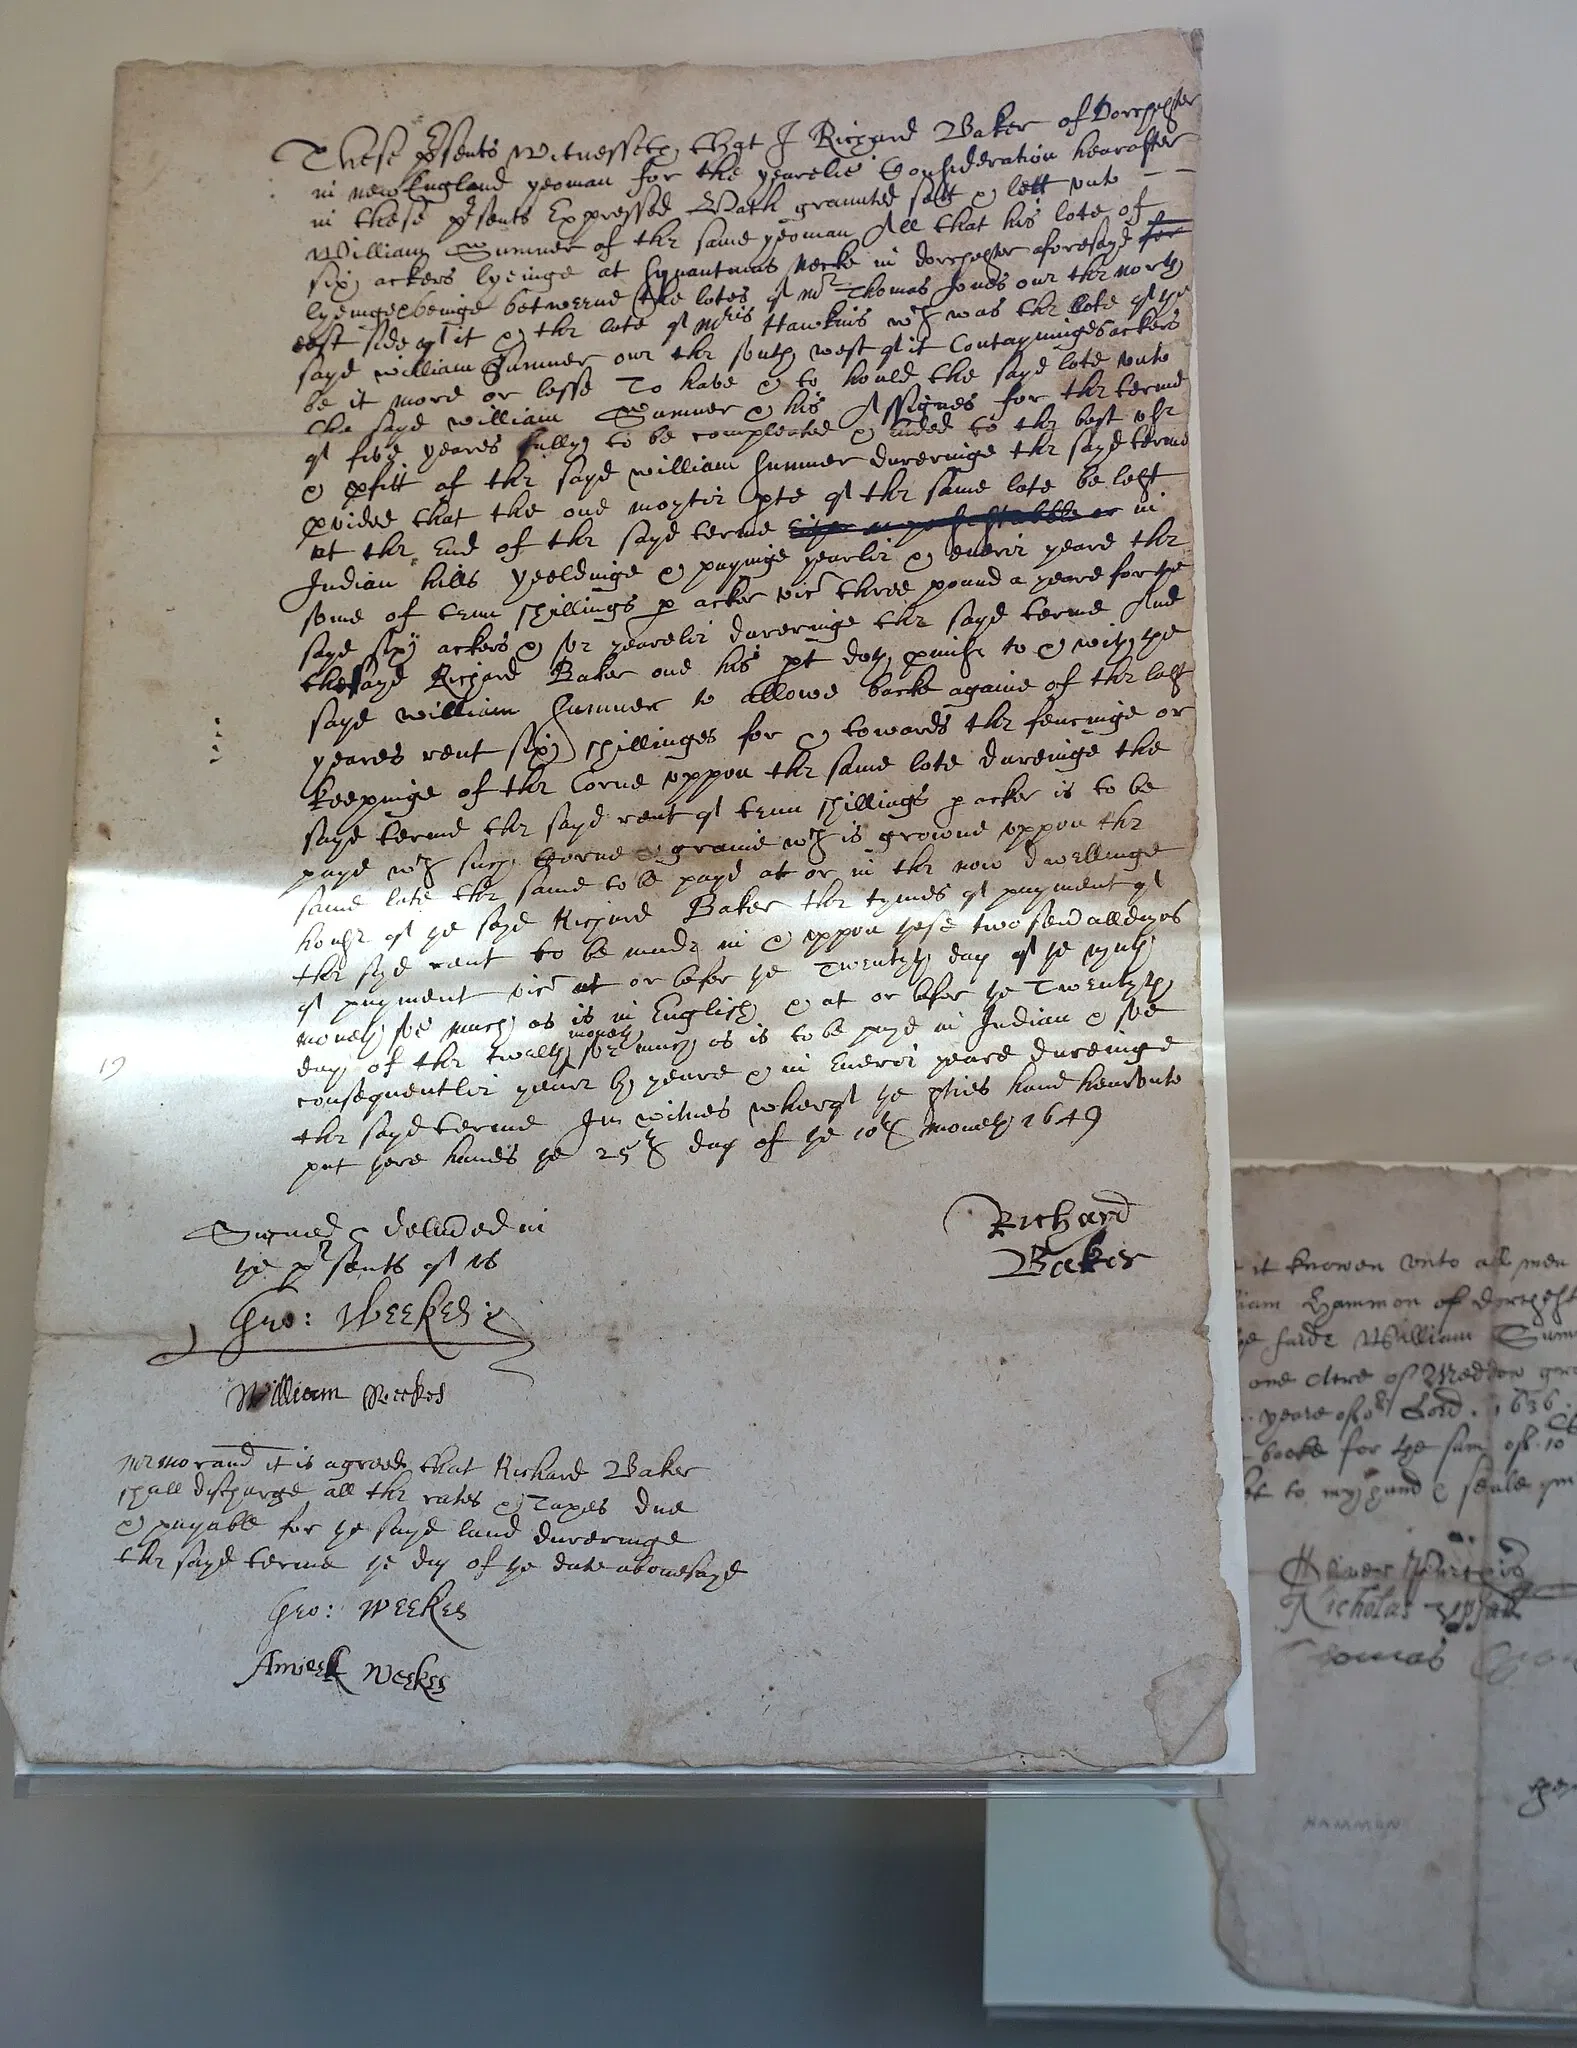 These prsents Witnesseth that I Richard Baker of Dorchester
in new England yeoman for the yearelie Consideration hearafter
in these prsents Expressed Hath graunted sett & lett unto
William Sumner of the same yeoman All that his lote of
six ackers lyeinge at Squantums Necke in dorchester aforesayd for
lyeinge & beinge betweene the lotes of mr Thomas Jones one the north
east side of it & the lote of mris Hawkins wch was the lote of ye
sayd William Sumner one the south west of it Contayninge 6 ackers
be it more or lesse To have & to hould the sayd lote unto
the sayd William Sumner & his Assignes for the terme
of five yeares fully to be compleated & Ended to the best use
& pfitt of the sayd William Sumner dureringe the sayd terme
pvided that the one moytie pte of the same lote be left
at the End of the sayd terme in
Indian hills yeeldinge & payinge yearlie & everie yeare the
some of tenn shillings p acker vict three pound a yeare for the
sayd six ackers & soe yearelie dureringe the sayd terme And
the sayd Richard Baker one his pt doth pmise to & with the
sayd William Sumner to allowe backe againe of the last
yeares rent six shillinges for & towards the fencinge or
keepinge of the Corne uppon the same lote dureinge the
sayd terme the sayd rent of tenn shillings p acker is to be
payd wth such Corne & graine wch is growne uppon the
same lote the same to be payd at or in the now dwellinge
house of ye sayd Richard Baker the tymes of payment of
the sayd rent to be made in & uppon these two severall dayes
of payment vict at or befor ye Twentyth day of ye nynth
moneth soe much as is in English & at or befor ye Twentyth
day of the twelfth moneth soe much as is to be payd in Indian & soe
consequentlie yeare by yeare & in Everie yeare dureinge
the sayd terme In witnes wherof ye pties have hearunto
put there hands ye 25th day of ye 10th moneth 1649
Signed & delivered in
ye prsents of us
Richard
Baker
Geo: Weekes
William Weekes
memorand it is agreed that Richard Baker
shall discharge all the rates & Taxes due
& payable for ye sayd land dureringe
the sayd terme ye day of ye date abovesayd
Geo: Weekes
Amiell Weekes
it knowen unto all men
Hammon of dorchest
William Sum
one Acre of Meddow
yeare of or Lord. 1636.
booke for the sum of .10
to my hand & seale
Nicholas Upsall
Thomas
HAMMON